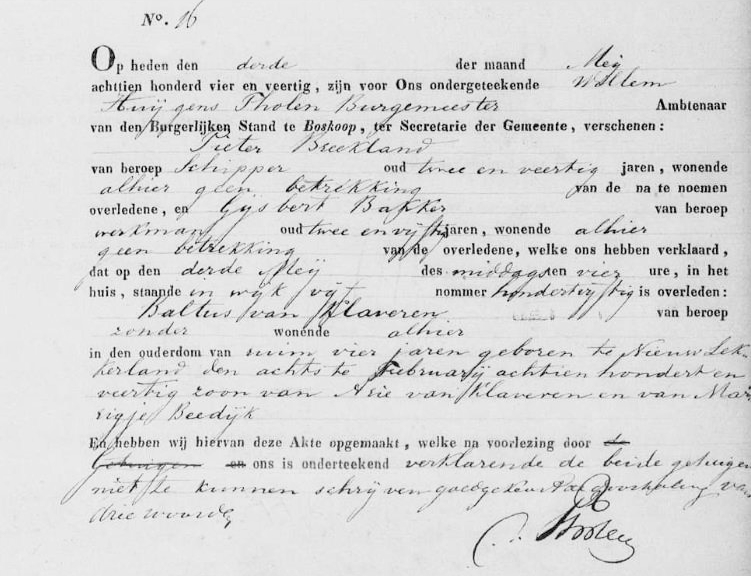 No. 16
Op heden den derde der maand Meij
achttien honderd vier en veertig, zijn voor Ons ondergeteekende Willem
Huijgens Tholen Burgemeester Ambtenaar
van den Burgerlijken Stand te Boskoop, ter Secretarie der Gemeente, verschenen:
Pieter Breekland
van beroep Schipper oud twee en veertig jaren, wonende
alhier geen betrekking van de na te noemen
overledene, en Gijsbert Bakker van beroep
werkman oud twee en vijftig jaren, wonende alhier
geen betrekking van de overledene, welke ons hebben verklaard,
dat op den derde Meij des middags ten vier ure, in het
huis, staande in wijk vijf nommer hondertvijftig is overleden:
Baltus van Klaveren van beroep
zonder wonende alhier
in den ouderdom van ruim vier jaren geboren te Nieuw Lek-
kerland den achtste Februarij achtien hondert en
veertig zoon van Arie van Klaveren en van Mar-
rigje Beedijk
En hebben wij hiervan deze Akte opgemaakt, welke na voorlezing door de
getuigen en ons is onderteekend verklarende de beide getuigen
niet te kunnen schrijven goedgekeurd de doorhaling van
drie woorden
Tholen